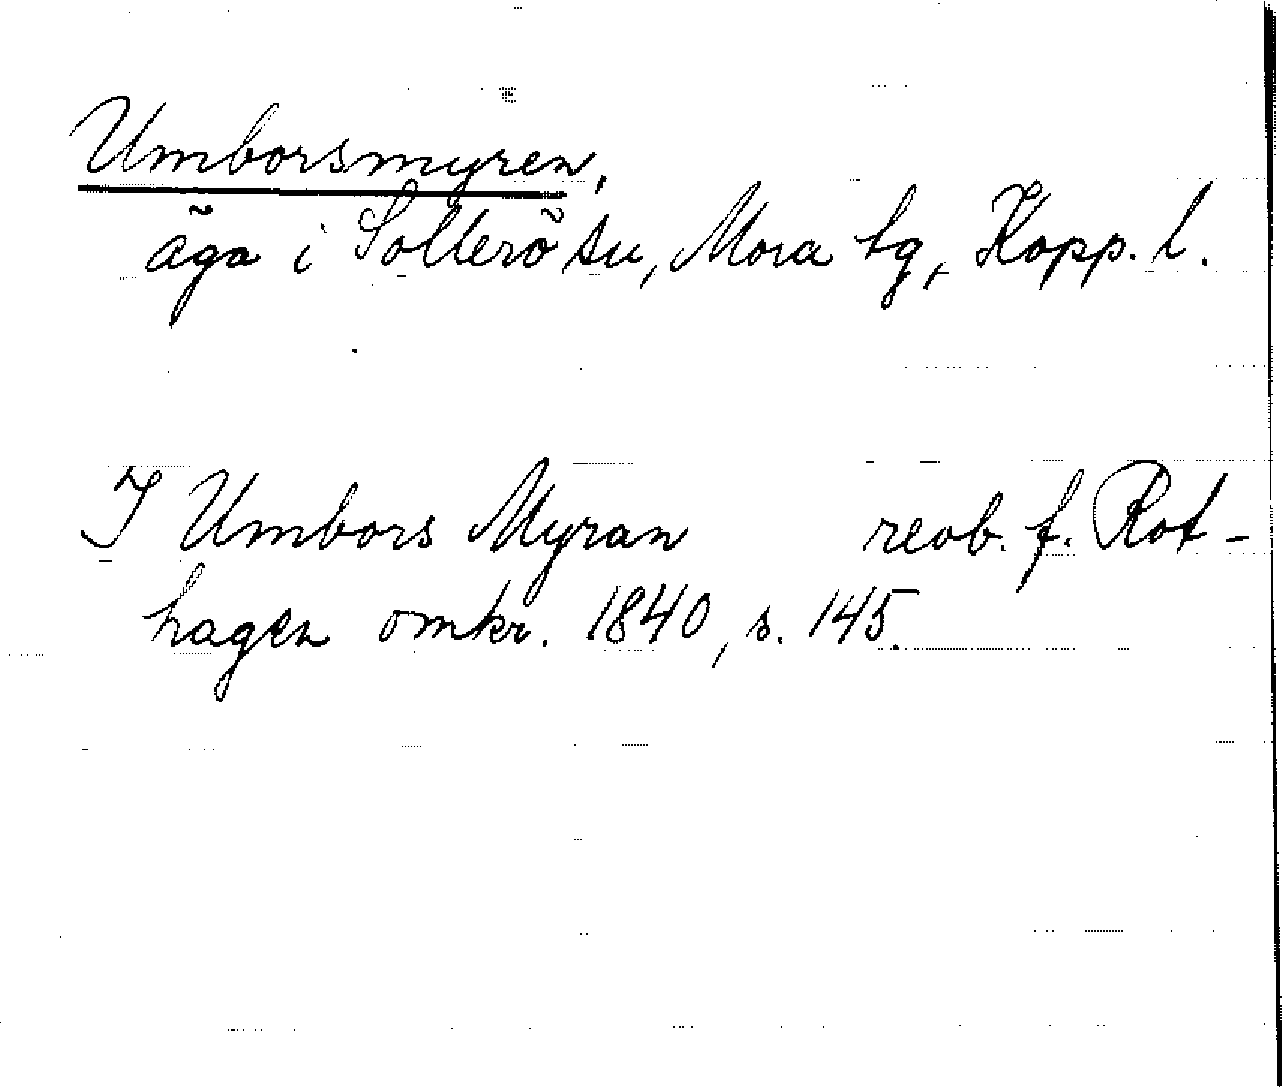 Umborsmyren,
äga i Sollerö sn, Mora tg, Kopp. l.
I Umbors Myran reob. f. Rot-
hagen omkr. 1840, s. 145.